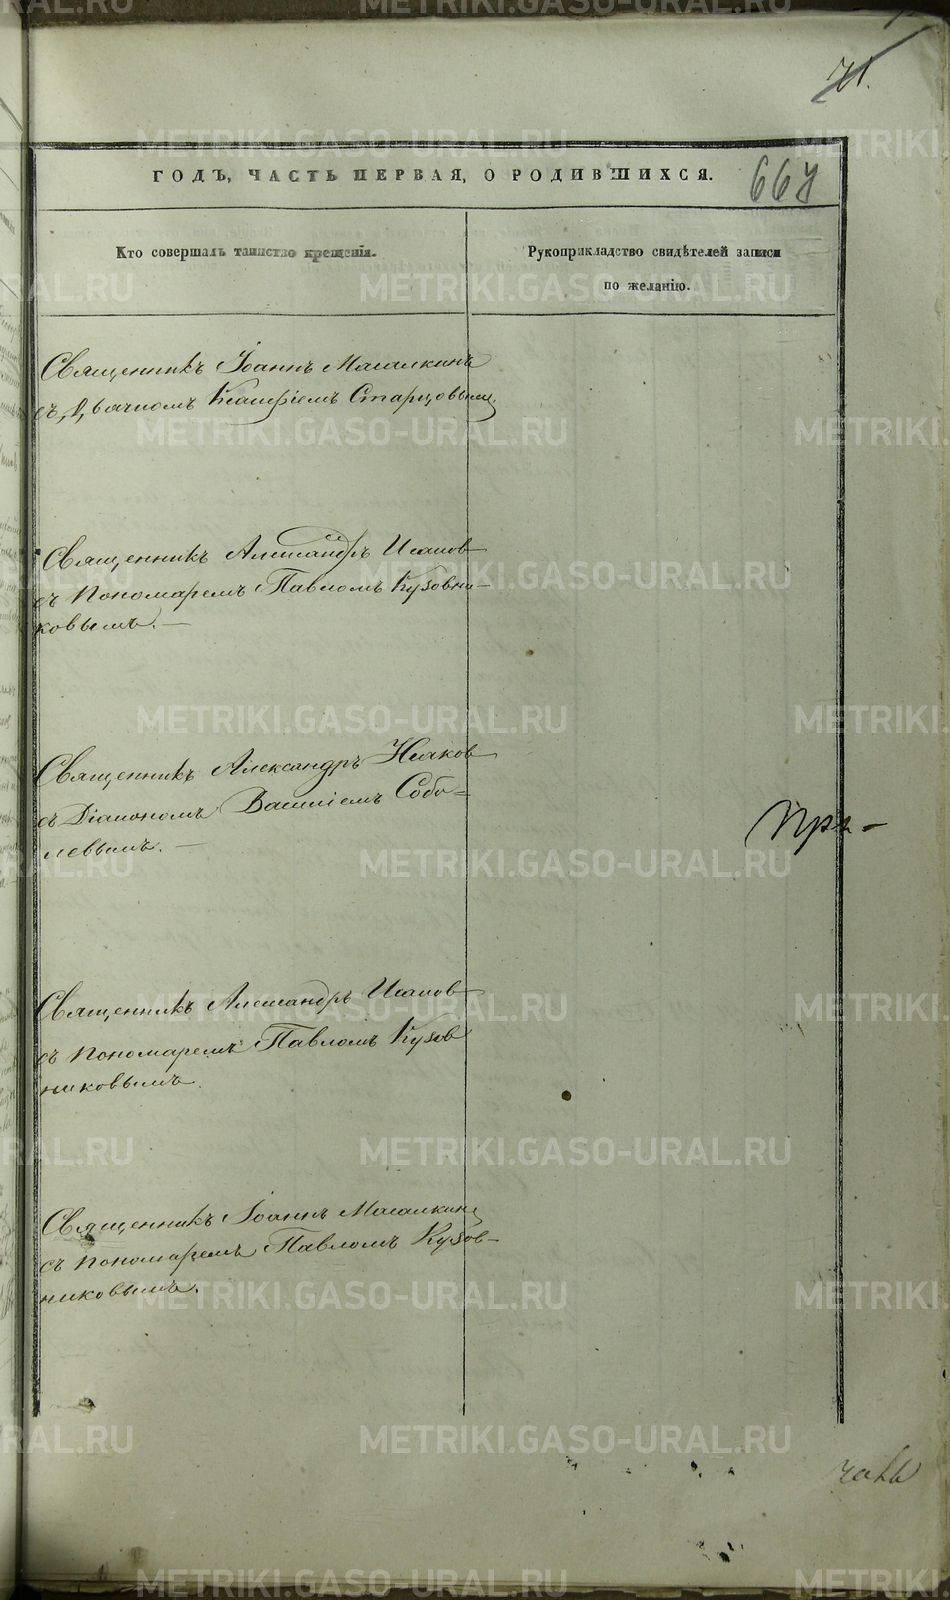 71.
ГОДЪ, ЧАСТЬ ПЕРВАЯ, О РОДИВШИХСЯ.
667
Кто совершалъ таинство крещенія.
Рукоприкладство свидѣтелей записи
по желанію.
Священникъ Іоаннъ Магалкинъ
съ Дьячкомъ Старцовымъ
Священникъ Александръ Исаков
съ Пономаремъ Павломъ Кузовни-
ковымъ.
Священникъ Александръ Исаков
съ Діакономъ Василіемъ Собо-
левымъ.
При-
Священникъ Александръ Исаков
съ Пономаремъ Павломъ Кузов
никовымъ.
Священникъ Іоаннъ Магалкинъ
съ Пономаремъ Павломъ Кузов-
никовымъ.
METRIKI.GASO-URAL.RU